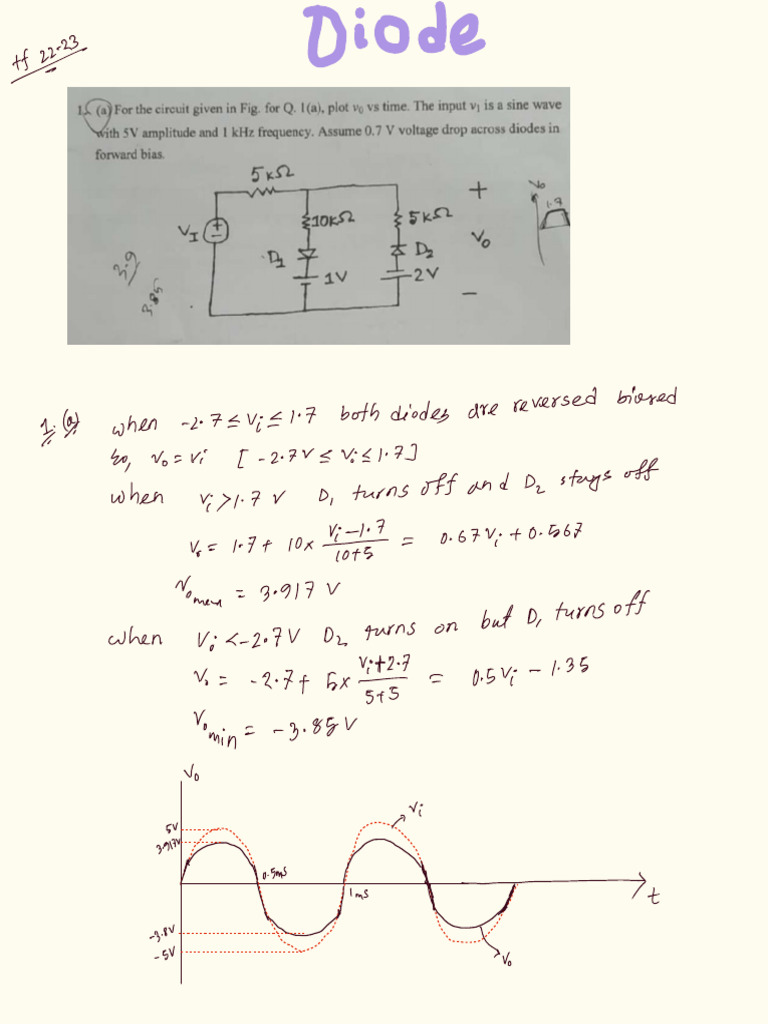 Diode
tf 22-23
1. (a) For the circuit given in Fig. for Q. 1(a), plot v₀ vs time. The input v₁ is a sine wave
with 5V amplitude and 1 kHz frequency. Assume 0.7 V voltage drop across diodes in
forward bias.
5kΩ
10kΩ
5kΩ
+
V₀
1.7
V_I
+
-
D₁
D₂
V₀
1V
2V
-
3.9
3.85
1. (a) when -2.7 ≤ Vi ≤ 1.7 both diodes are reversed biased
so, v₀ = vi [ -2.7V ≤ Vi ≤ 1.7]
when Vi > 1.7 V D₁ turns off and D₂ stays off
V₀ = 1.7 + 10 × (Vi - 1.7)/(10+5) = 0.67Vi + 0.567
V₀ = 3.917 V
when Vi < -2.7V D₂ turns on but D₁ turns off
V₀ = -2.7 + 5 × (Vi + 2.7)/(5+5) = 0.5Vi - 1.35
V₀min = -3.85V
V₀
Vi
5V
3.917V
0.5ms
1ms
t
-3.8V
-5V
V₀